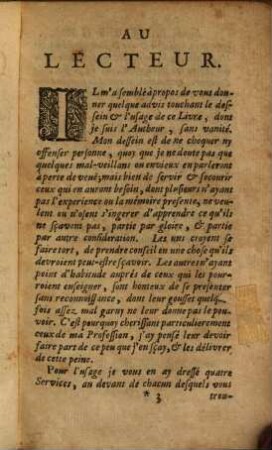 AU
LECTEUR.
IL m'a semblé à propos de vous don-
ner quelque advis touchant le des-
sein & l'usage de ce Livre, dont
je suis l'Autheur, sans vanité.
Mon dessein est de ne choquer ny
offenser personne, quoy que je ne doute pas que
quelques mal-veillans ou envieux en parleront
à perte de veuë; mais bien de servir & secourir
ceux qui en auront besoin, dont plusieurs n'ayans
pas l'experience ou la memoire presente, ne veu-
lent ou n'osent s'ingerer d'apprendre ce qu'ils
ne sçavent pas, partie par gloire, & partie
par autre consideration. Les uns croyent se
faire tort, de prendre conseil en une chose qu'ils
devroient peut-estre sçavoir. Les autres n'ayant
point d'habitude auprés de ceux qui les pour-
roient enseigner, sont honteux de se presenter
sans reconnoissance, dont leur gousset quelq
fois assez mal garny ne leur donne pas le pou-
voir. C'est pourquoy cherissant particulierement
ceux de ma Profession, j'ay pensé leur devoir
faire part de ce peu que j'en sçay, & les délivrer
de cette peine.
Pour l'usage je vous en ay dressé quatre
Services, au devant de chacun desquels vous
* 3 trou-